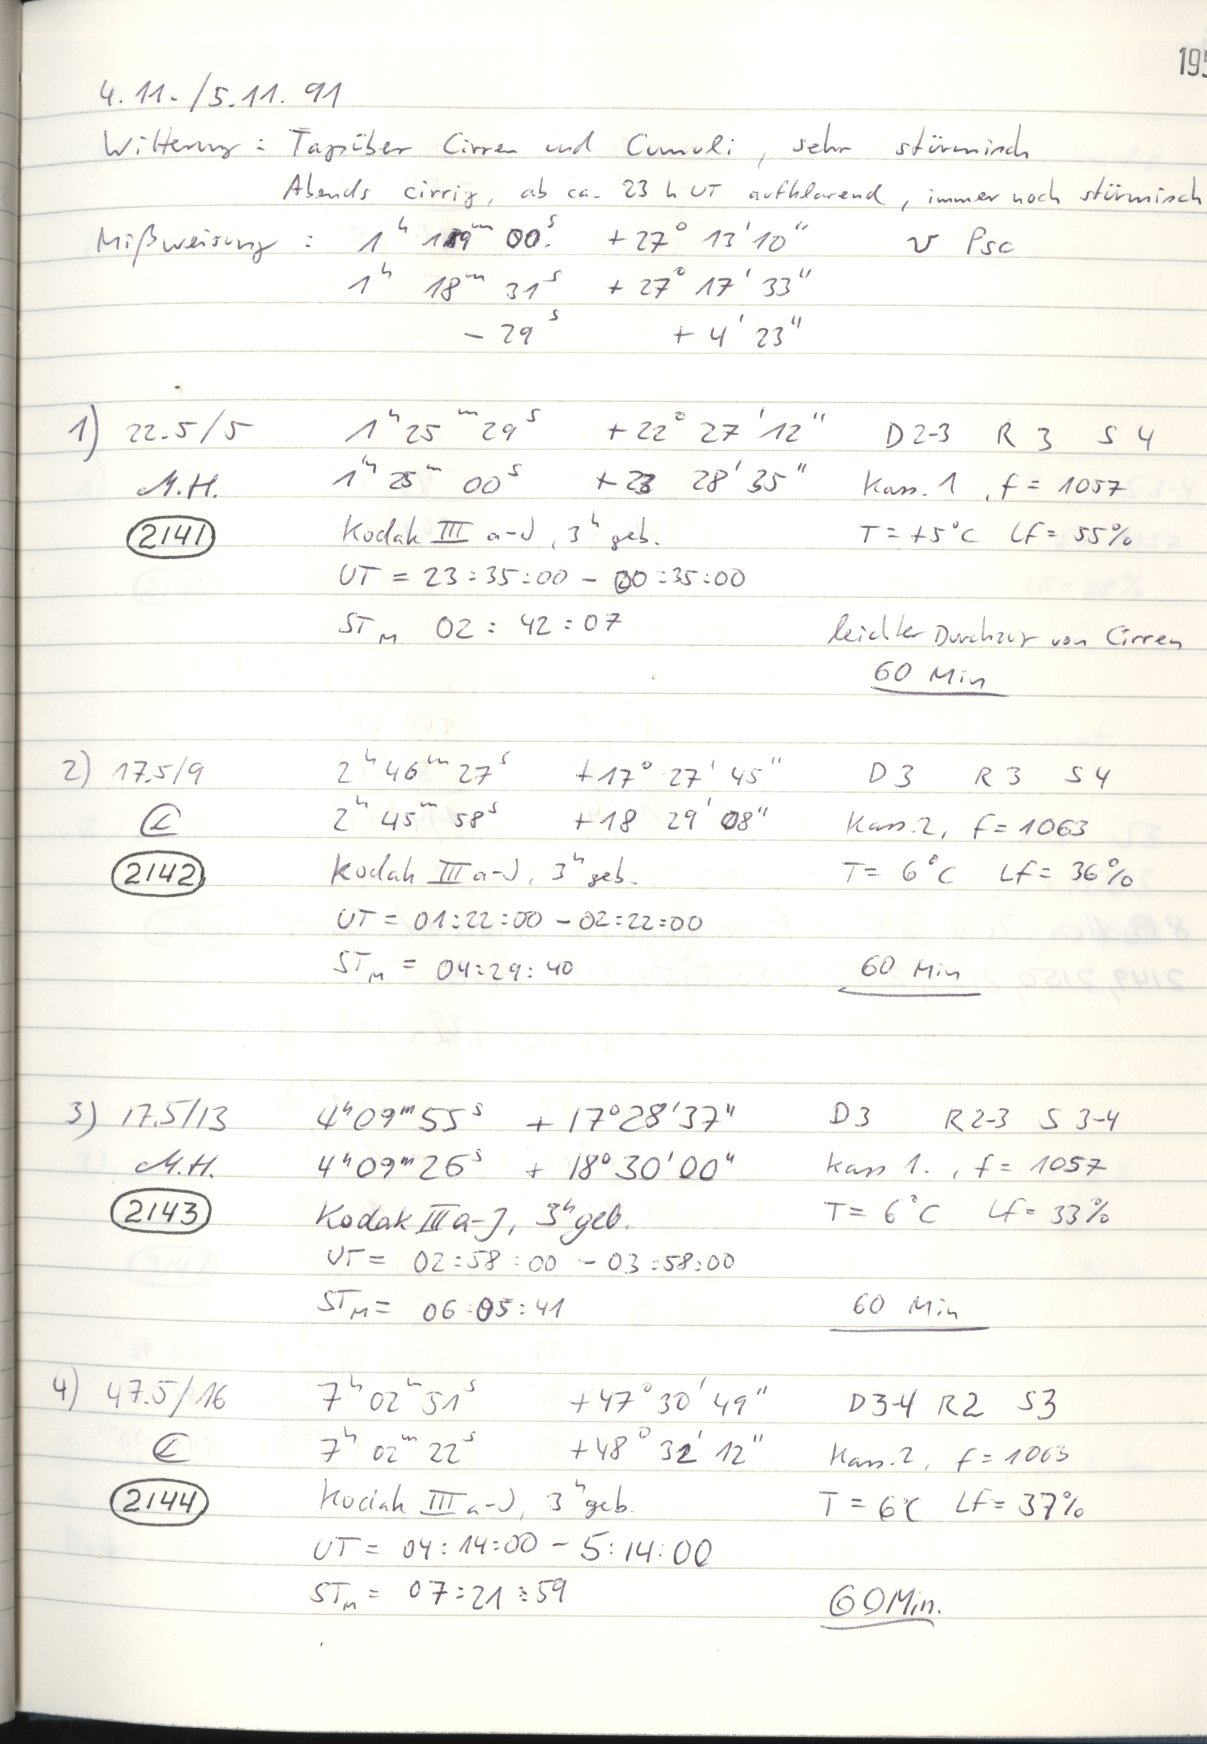 195
4.11. /5.11. 91
Witterung : Tagsüber Cirren und Cumuli, sehr stürmisch
Abends cirrig, ab ca. 23 h UT aufklarend, immer noch stürmisch
Mißweisung : 1ʰ 19ᵐ 00ˢ. +27° 13' 10" υ Psc
1ʰ 18ᵐ 31ˢ +27° 17' 33"
- 29ˢ + 4' 23"
1) 22.5/5 1ʰ 25ᵐ 29ˢ +22° 27' 12" D2-3 R 3 S 4
M.H. 1ʰ 25ᵐ 00ˢ +23 28' 35" Kass. 1, f = 1057
2141 Kodak III a-J, 3ʰ geb. T = +5°C Lf = 55%
UT = 23:35:00 - 00:35:00
STM 02 : 42 : 07 leichter Durchzug von Cirren
60 Min
2) 17.5/9 2ʰ 46ᵐ 27ˢ +17° 27' 45" D3 R3 S4
2ʰ 45ᵐ 58ˢ +18 29' 08" Kass. 2, f = 1063
2142 Kodak III a-J, 3ʰ geb. T = 6°C Lf = 36%
UT = 01:22:00 - 02:22:00
STM = 04:29:40 60 Min
3) 17.5/13 4ʰ09ᵐ55ˢ +17°28'37" D3 R2-3 S 3-4
M.H. 4ʰ09ᵐ26ˢ + 18°30'00" Kass 1. , f = 1057
2143 Kodak III a-J, 3ʰ geb. T = 6°C Lf = 33%
UT = 02:58:00 - 03:58:00
STM = 06:05:41 60 Min
4) 47.5/16 7ʰ 02ᵐ 51ˢ +47° 30' 49" D3-4 R2 S3
7ʰ 02ᵐ 22ˢ +48° 32' 12" Kass. 2, f = 1063
2144 Kodak III a-J, 3ʰ geb. T = 6°C Lf = 37%
UT = 04:14:00 - 5:14:00
STM = 07:21:59 60 Min.